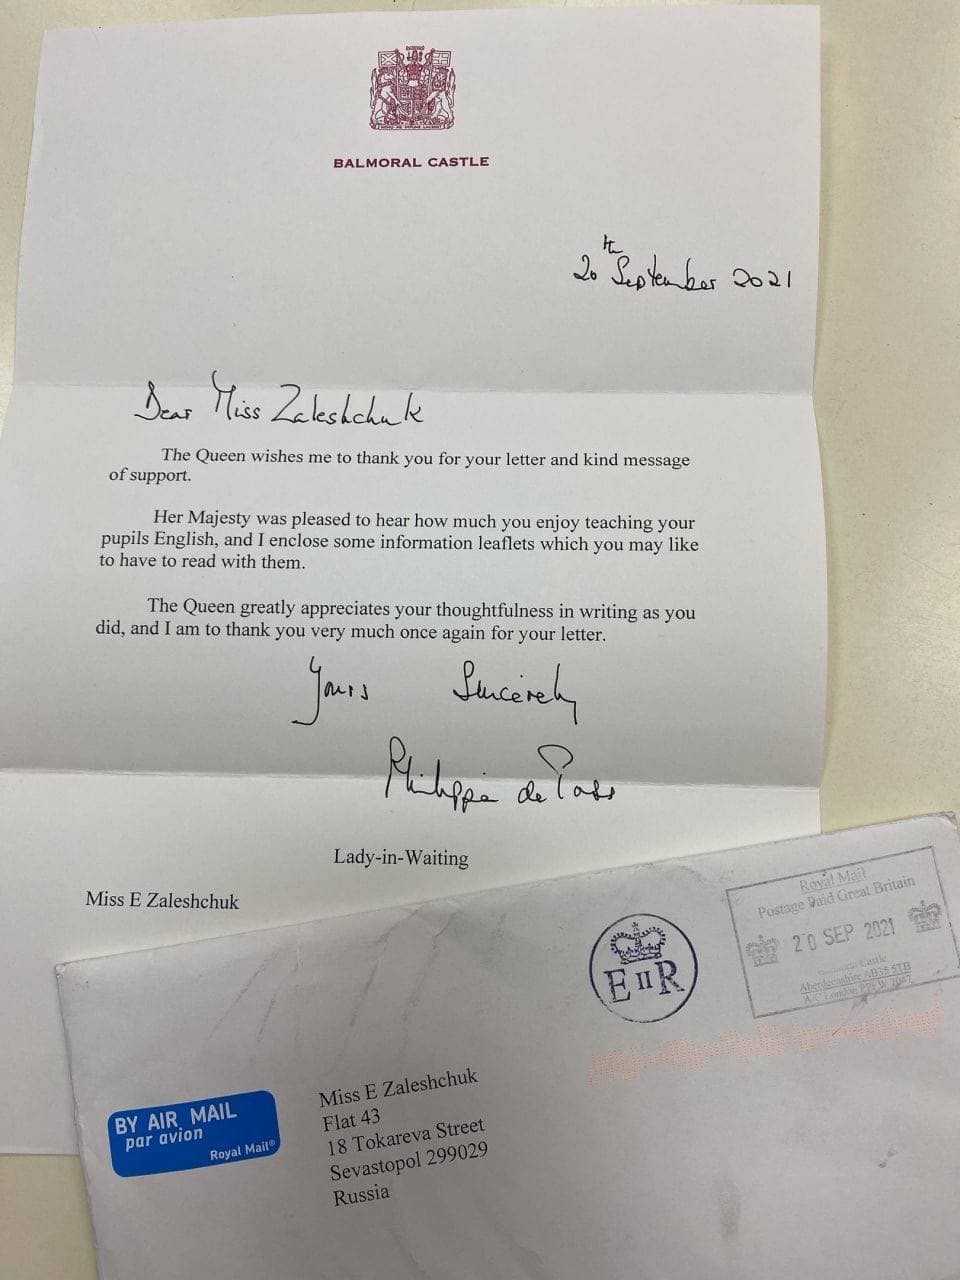 BALMORAL CASTLE
20th September 2021
Dear Miss Zaleshchuk
The Queen wishes me to thank you for your letter and kind message
of support.
Her Majesty was pleased to hear how much you enjoy teaching your
pupils English, and I enclose some information leaflets which you may like
to have to read with them.
The Queen greatly appreciates your thoughtfulness in writing as you
did, and I am to thank you very much once again for your letter.
Yours Sincerely
Philippa de Pass
Lady-in-Waiting
Miss E Zaleshchuk
Royal Mail
Postage Paid Great Britain
20 SEP 2021
Castle
Aberdeenshire AB35 5TB
A/C London
E II R
BY AIR MAIL
par avion
Royal Mail®
Miss E Zaleshchuk
Flat 43
18 Tokareva Street
Sevastopol 299029
Russia